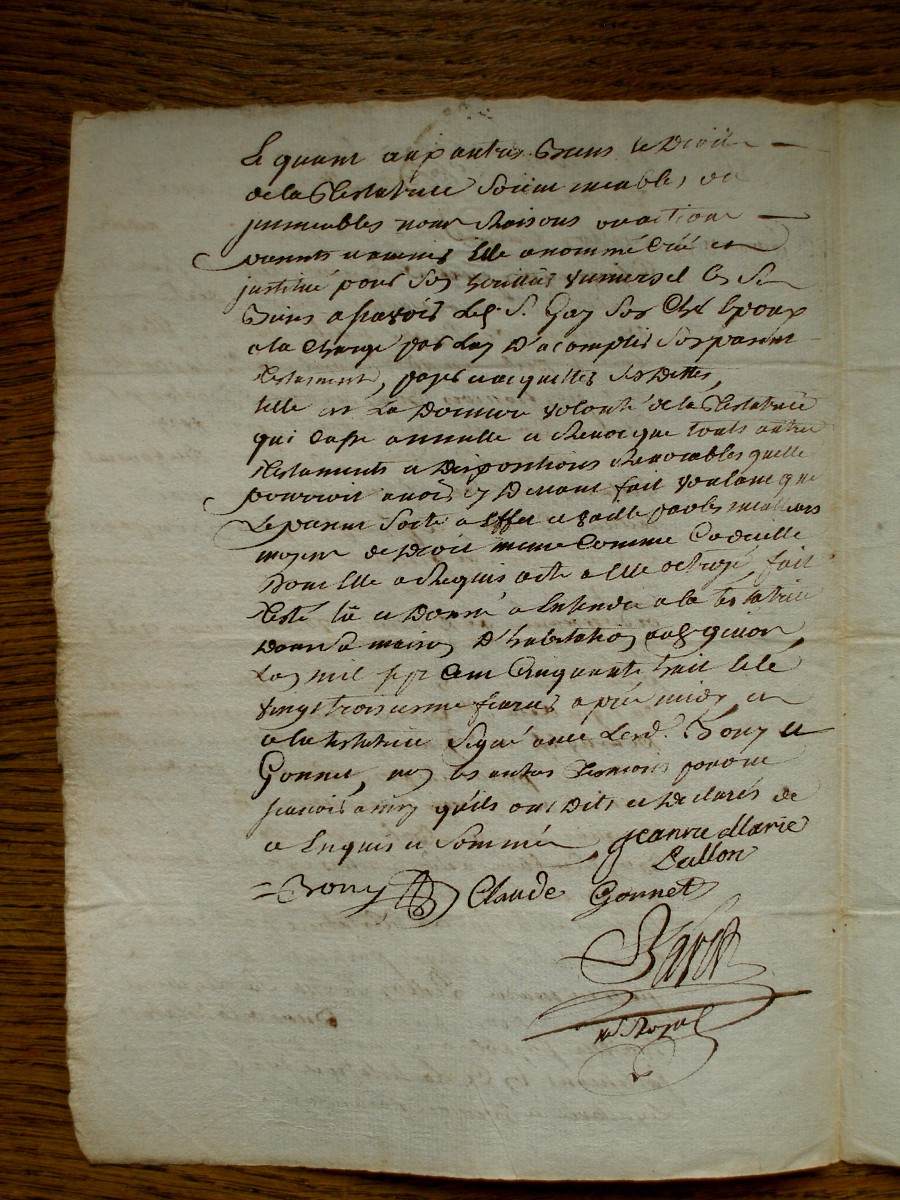 Et quant aux autres Biens et Droits
de la Testatrice soient meubles, ou
jmmeubles noms Raisons ou actions
presents et avenir Elle a nommé Créé et
jnstitué pour son heritier vniversel es Ses
Biens a sçavoir Led. Sr. Gay Son Cher Epoux
a la Charge par Luy D'acomplir Son present
testament, payer et acquitter Ses Dettes,
telle est La Derniere volonté de la Testatrice
qui Casse annulle et Revocque touts autres
testaments et Dispositions Revocables quelle
pourroit avoir cy Devant fait voulant que
Le present Sorte a Effet et vaille par les meilleurs
moyens de Droit meme Comme Codicille
Dont Elle a Requis acte a Elle octroyé, fait
Resté lû et Donné a Entendre a la testatrice
Dans Sa maison D'habitation aud.
L'an mil sept Cent Cinquante huit et le
vingt troisieme fevrier après midy et
a la testatrice Signé avec Lesd. Bony et
Gonnet, non les autres temoins pour ne
sçavoir ainsy qu'ils ont Dits et Declarés de
ce Enquis et Sommés Jeanne Marie
Ballon
Bony Claude Gonnet
Bavet
no. Royal